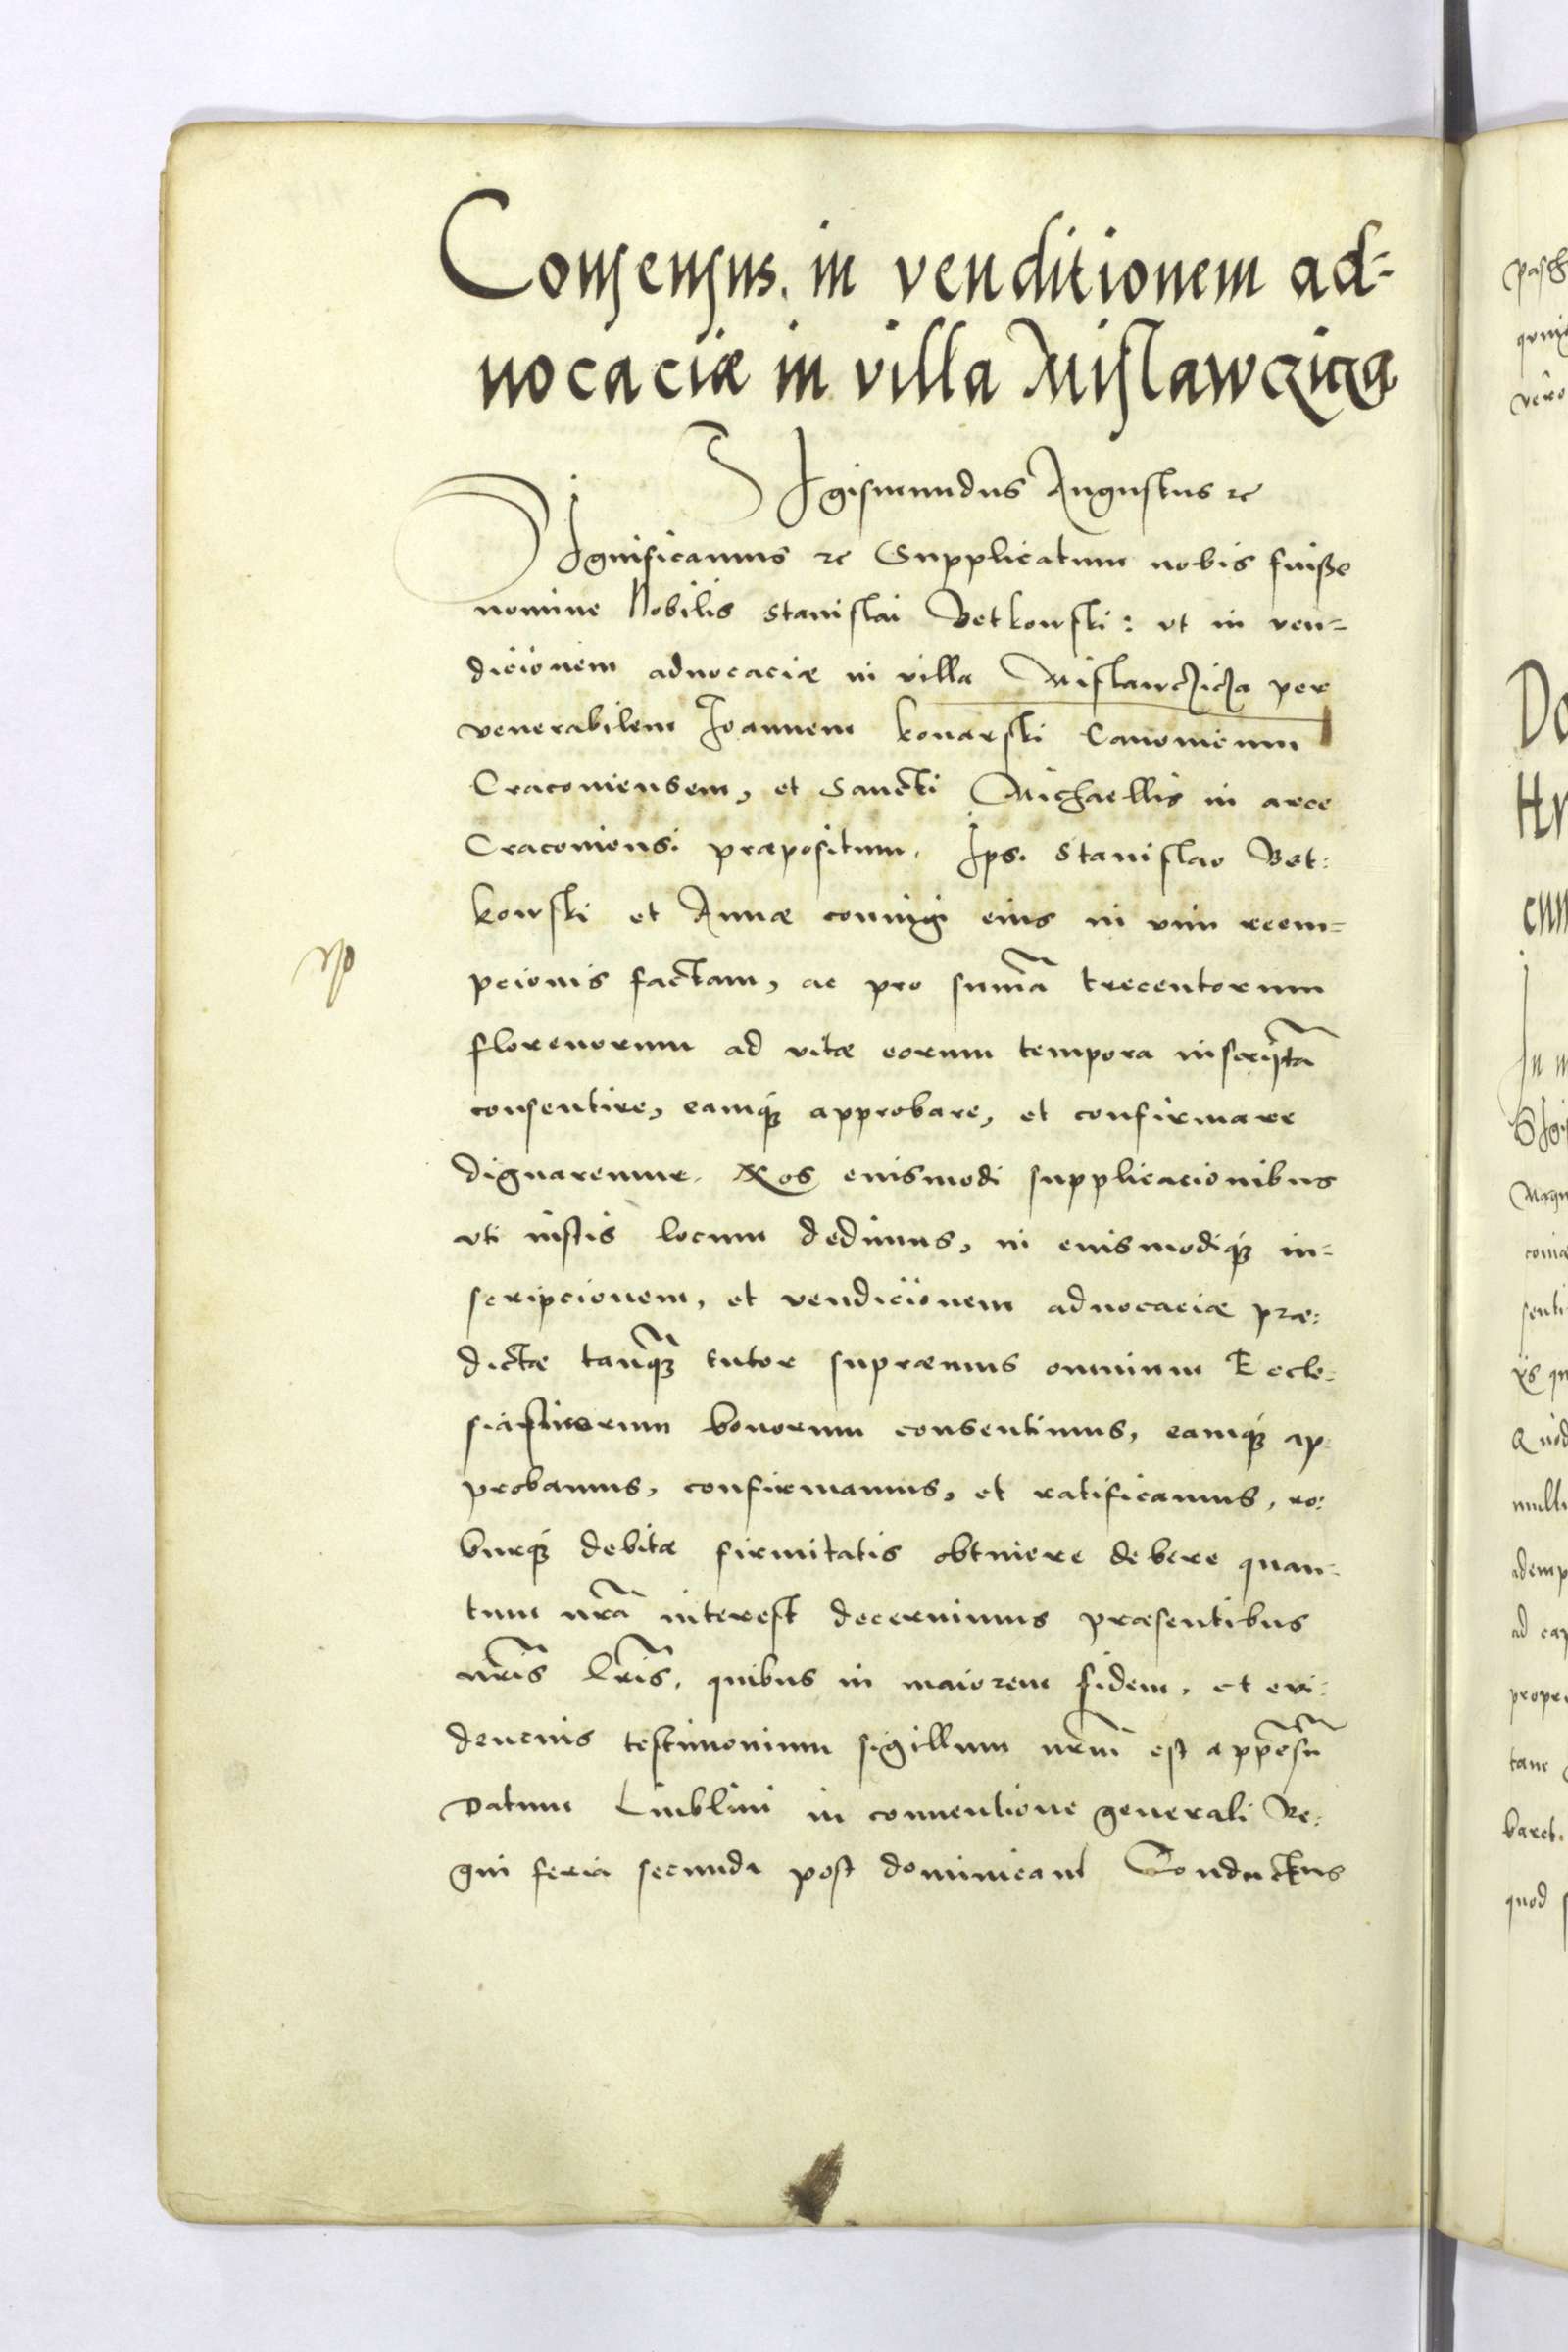 Consensus in venditionem ad-
uocaciæ in villa Mislawcziza
SIgismundus Augustus etc
SIgnificamus etc Supplicatum nobis fuisse
nomine Nobilis Stanislai Betkowski: vt in ven-
dicionem aduocaciæ in villa Mislawczicza per
venerabilem Ioannem Konarski Canonicum
Cracouiensem, et Sancti Michaellis in arce
Cracouiensi præpositum. Ipsi Stanislao Bet:
kowski et Annæ coniugi eius in vim reem-
pcionis factam, ac pro sum̃a trecentorum
florenorum ad vitæ eorum tempora inscriptã
consentire, eamq́ approbare, et confirmare
dignaremur. Nos eiusmodi supplicacionibus
vti iustis locum dedimus, in eiusmodiq́ in-
scripcionem, et vendicionem aduocaciæ præ:
dictæ tanq̃ tutor supræmus omnium Eccle-
siasticorum bonorum consentimus, eamq́ ap-
probamus, confirmamus, et ratificamus, ro:
burq́ debitæ firmitatis obtinere debere quan-
tum nr̃a interest decernimus præsentibus
nr̃is lr̃is, quibus in maiorem fidem, et evi:
dencius testimonium sigillum nr̃m est appresũ
Datum Liublini in conuentione generali Re:
gni feria secunda post dominicam Conductus